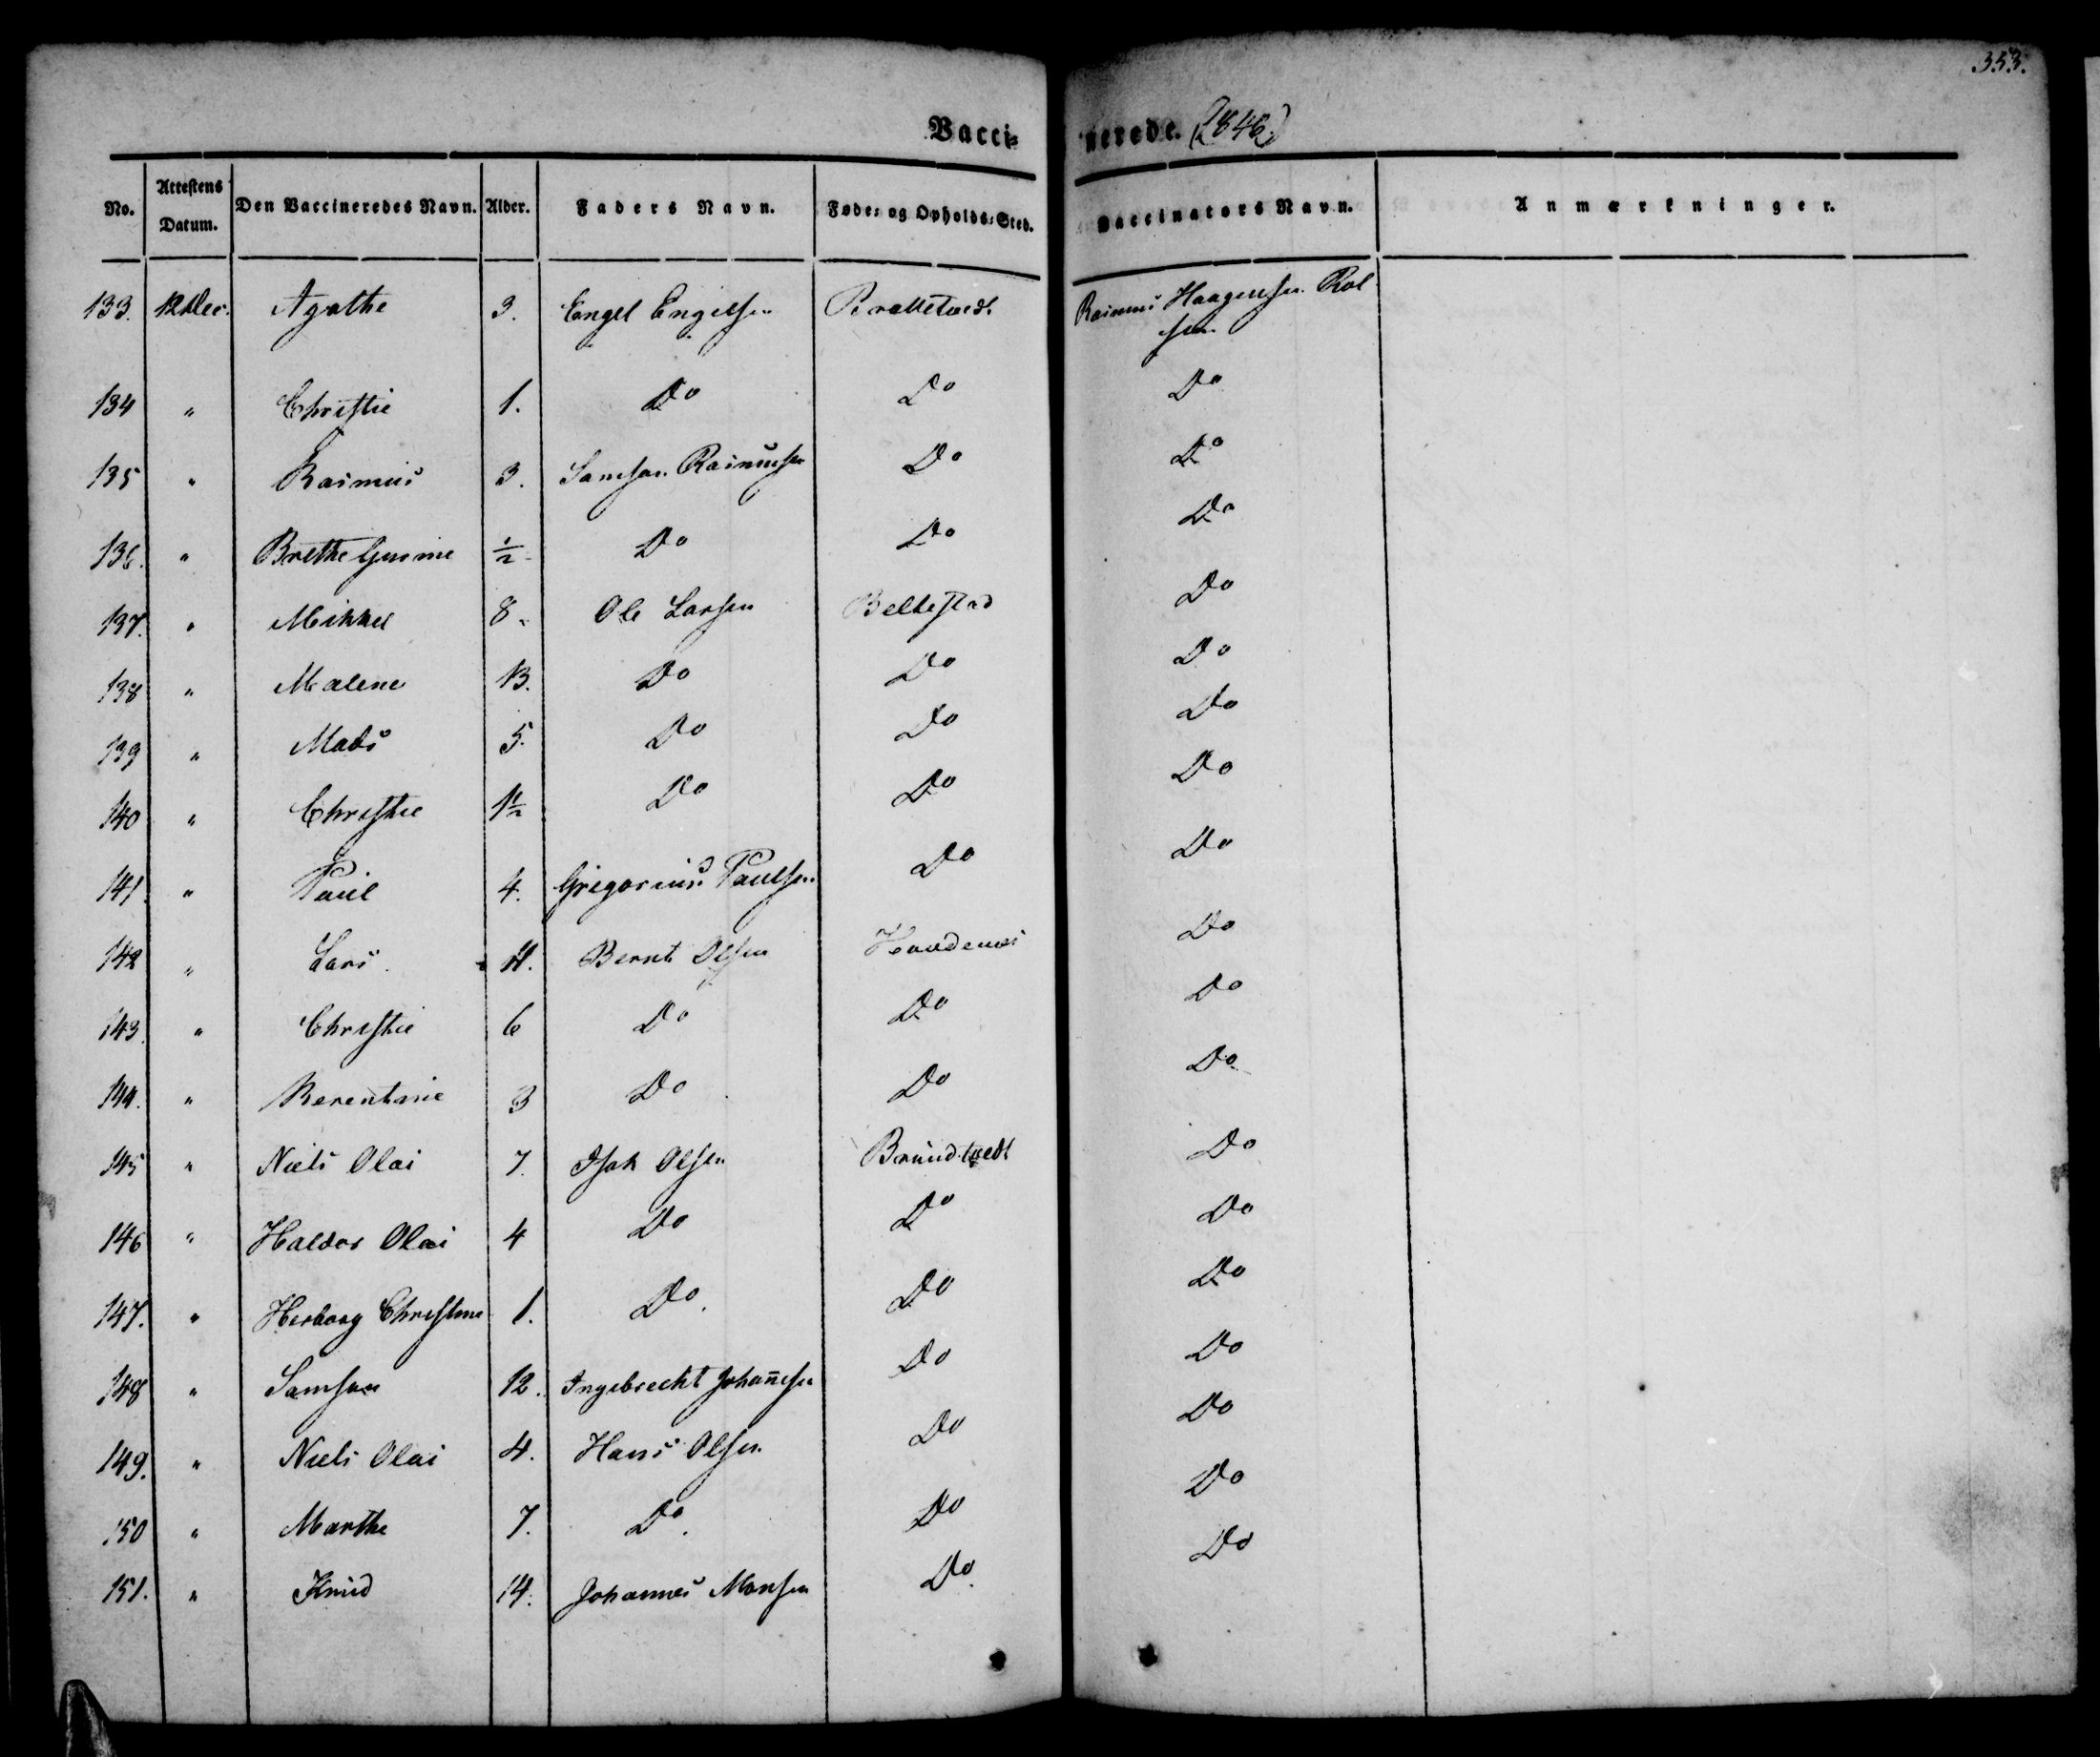 353.
Vacci= nerede. (1846.)
No. Attestens Datum. Den Vaccineredes Navn. Alder. Faders Navn. Føde= og Opholds=Sted. Vaccinators Navn. Anmærkninger.
133. 12 Dec. Agathe 3. Engel Engelsen Brattetvedt Rasmus Haagensen Rol
sen
134 " Christie 1. Do Do Do
135 " Rasmus 3. Samson Rasmusen Do Do
136. " Brethe Gurine ½ Do Do Do
137. " Mikkel 8. Ole Larsen Beltestad Do
138 " Malene 13. Do Do Do
139 " Mads 5. Do Do Do
140 " Christie 1½ Do Do Do
141. " Paul 4. Gregorius Paulsen Do Do
142 " Lars 11. Bernt Olsen Do
143. " Christie 6 Do Do Do
144. " Berentine 3 Do Do Do
145 " Niels Olai 7. Isak Olsen Brundtvedt Do
146 " Haldor Olai 4 Do Do Do
147. " Herborg Christine 1. Do. Do Do
148 " Samson 12. Ingebrecht Johannesen Do Do
149. " Niels Olai 4. Hans Olsen Do Do
150 " Marthe 7. Do. Do Do
151. " Knud 14. Johannes Monsen Do. Do